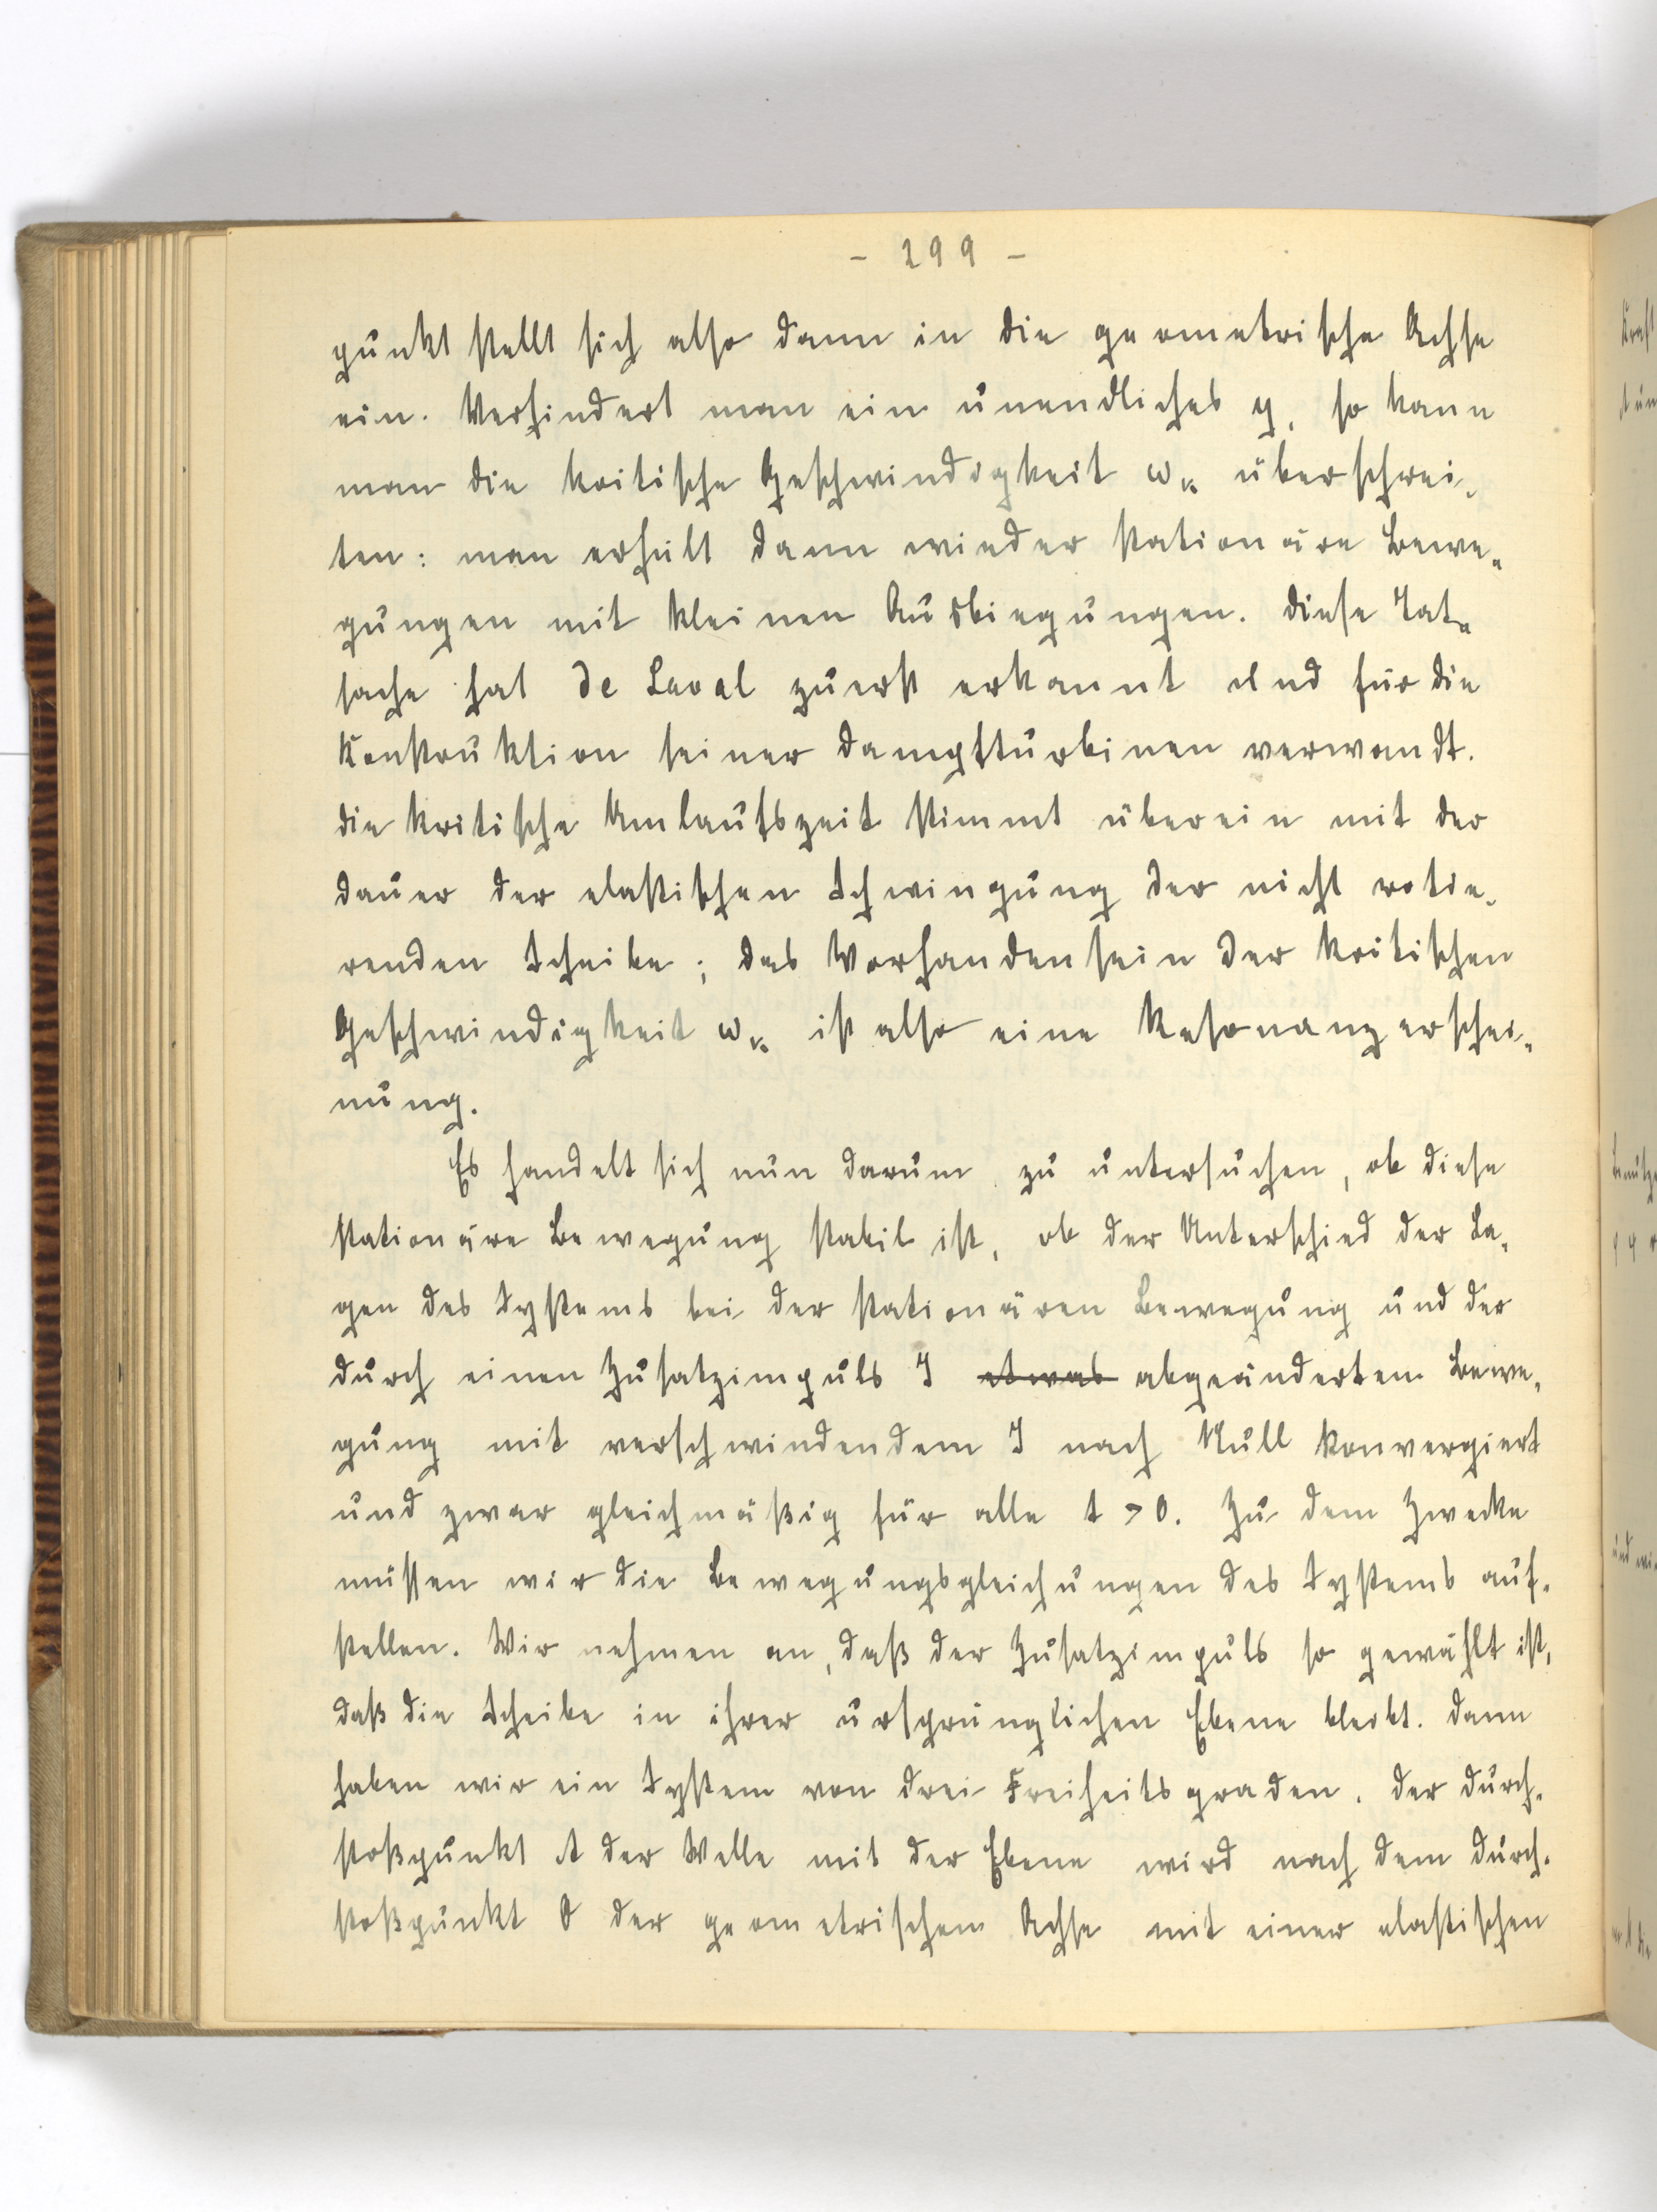 - 299 -
punkt stellt sich also dann in die geometrische Achse
ein. Verhindert man ein unendliches y, so kann
man die kritische Geschwindigkeit ω_k überschrei-
ten: man erhält dann wieder stationäre Bewe-
gungen mit kleinen Ausbiegungen. Diese Tat-
sache hat de Laval zuerst erkannt und für die
Konstruktion seiner Dampfturbinen verwandt.
Die kritische Umlaufszeit stimmt überein mit der
Dauer der elastischen Schwingung der nicht rotie-
renden Scheibe; das Vorhandensein der kritischen
Geschwindigkeit ω_k ist also eine Resonanzerschei-
nung.
Es handelt sich nun darum zu untersuchen, ob diese
stationäre Bewegung stabil ist, ob der Unterschied der La-
gen des Systems bei der stationären Bewegung und der
durch einen Zusatzimpuls J etwas abgeänderten Bewe-
gung mit verschwindendem J nach Null konvergiert
und zwar gleichmäßig für alle t > 0. Zu dem Zwecke
müssen wir die Bewegungsgleichungen des Systems auf-
stellen. Wir nehmen an, daß der Zusatzimpuls so gewählt ist,
daß die Scheibe in ihrer ursprünglichen Ebene bleibt. Dann
haben wir ein System von drei Freiheitsgraden. Der Durch-
stoßpunkt A der Welle mit der Ebene wird nach dem Durch-
stoßpunkt O der geometrischen Achse mit einer elastischen